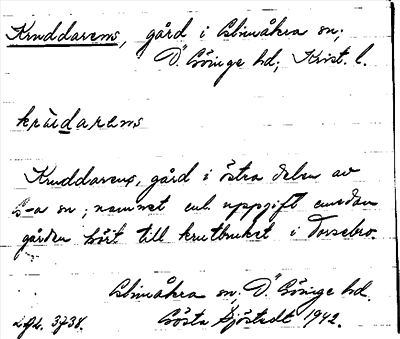 Kruddarens, gård i Glimåkra sn;
Ö. Göinge hd, Krist. l.
krùdarens
Kruddarens, gård i östra delen av
G-a sn; namnet enl. uppgift emedan
gården hört till krutbruket i Torsebro.
Glimåkra sn, Ö. Göinge hd.
Gösta Sjöstedt 1942.
LAL 3738.